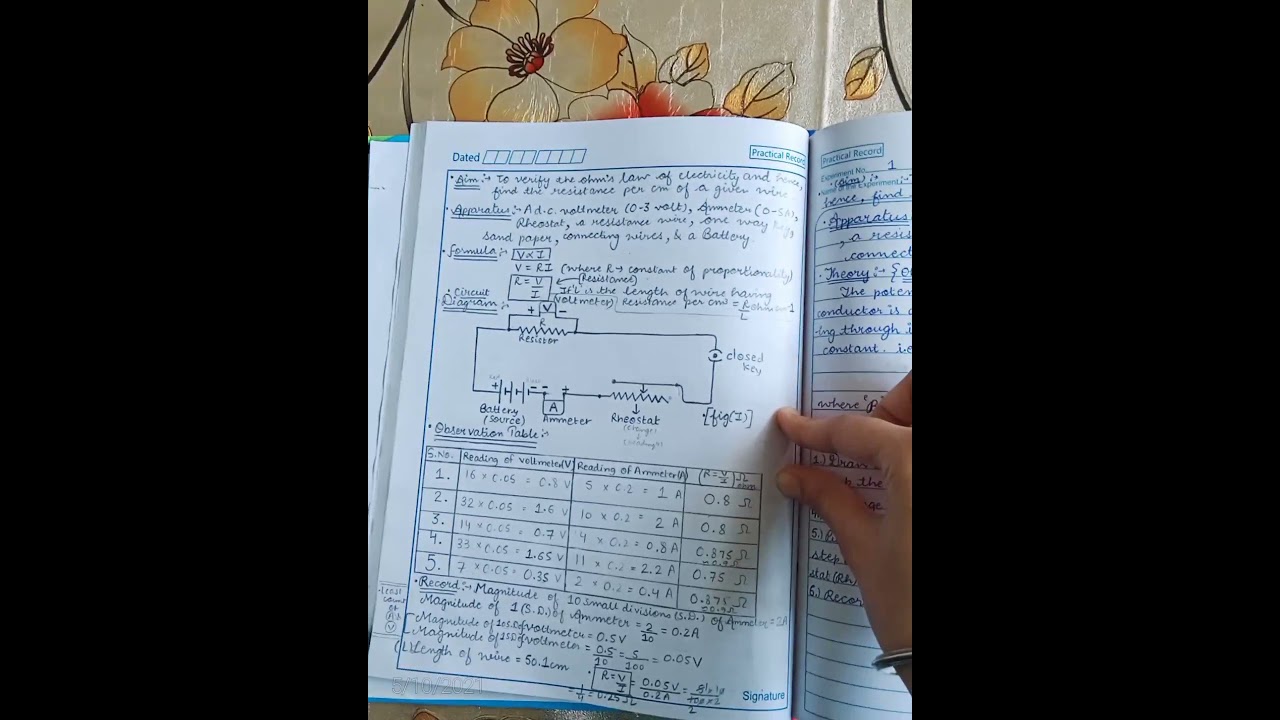 Dated
Practical Record
• Aim:- To verify the ohm's law of electricity and hence,
find the resistance per cm of a given wire
• Apparatus:- A d.c. voltmeter (0-3 volt), Ammeter (0-5A),
Rheostat, a resistance wire, one way key,
sand paper, connecting wires, & a Battery.
• Formula:- V∝I
V = RI (where R → constant of proportionality)
R = V/I (Resistance)
If 'L' is the length of wire having
Resistance per cm = R/L ohm
• Circuit
Diagram:-
(Voltmeter)
+ V -
R
Resistor
closed
key
+ - - +
A
Battery
(Source)
Ammeter
Rheostat
•[fig(I)]
• Observation Table:-
S.No. Reading of voltmeter(V) Reading of Ammeter(A) (R = V/I) Ω ohm
1. 16 × 0.05 = 0.8 V 5 × 0.2 = 1 A 0.8 Ω
2. 32 × 0.05 = 1.6 V 10 × 0.2 = 2 A 0.8 Ω
3. 14 × 0.05 = 0.7 V 4 × 0.2 = 0.8 A 0.875 Ω ≈ 0.9 Ω
4. 33 × 0.05 = 1.65 V 11 × 0.2 = 2.2 A 0.75 Ω
5. 7 × 0.05 = 0.35 V 2 × 0.2 = 0.4 A 0.875 Ω ≈ 0.9 Ω
• Record:- Magnitude of 10 small divisions (S.D.) of Ammeter = 2A
Magnitude of 1 (S.D.) of Ammeter = 2/10 = 0.2A
Magnitude of 10 S.D of voltmeter = 0.5 V
Magnitude of 1 S.D of voltmeter = 0.5/10 = 5/100 = 0.05 V
Least
count
of
A &
V
(L) Length of wire = 50.1 cm
R = V/I = 0.05 V/0.2 A
= 1/4 = 0.25 Ω
Signature
5/10/2021
Practical Record
Experiment No. 1
Name of the Experiment:
(Aim):-
hence, find
• Apparatus
, a resis
connect
• Theory:- {O
The poten
conductor is
-ing through i
constant. i.e
where
1.) Draw
the
5.)
step
stat(Rh)
6.) Recor